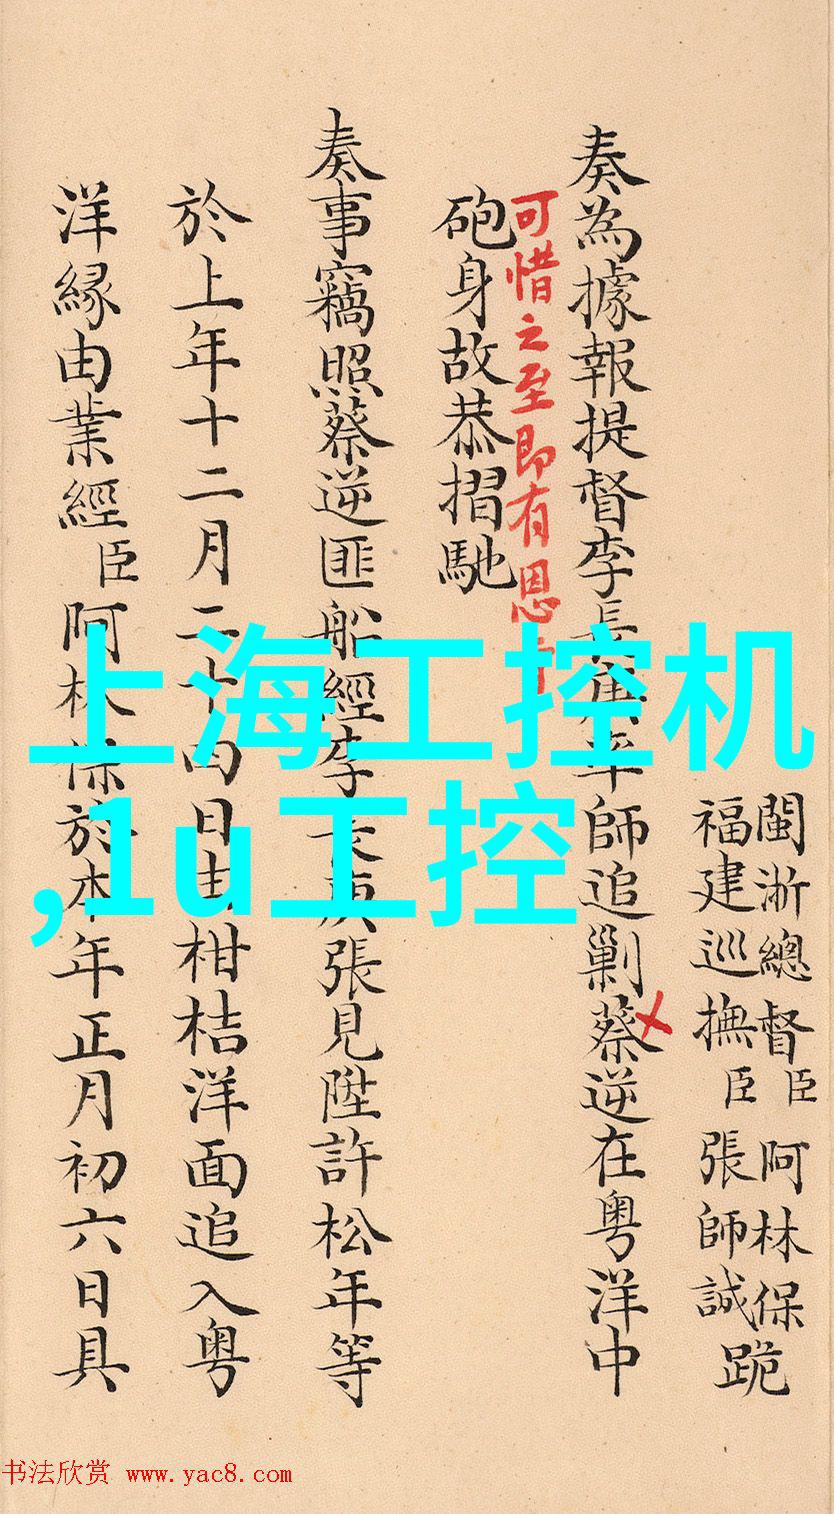 闽浙總督臣阿林保跪
福建巡撫臣張師誠
奏為據報提督李長庚率師追剿蔡逆在粤洋中
可惜之至即有恩
砲身故恭摺馳
奏事竊照蔡逆匪船經李長庚張見陞許松年等
於上年十二月二十四日由柑桔洋面追入粤
洋縁由業經臣阿林保於本年正月初六日具
上海工控机
,1u工控
书法欣赏 www.yac8.com